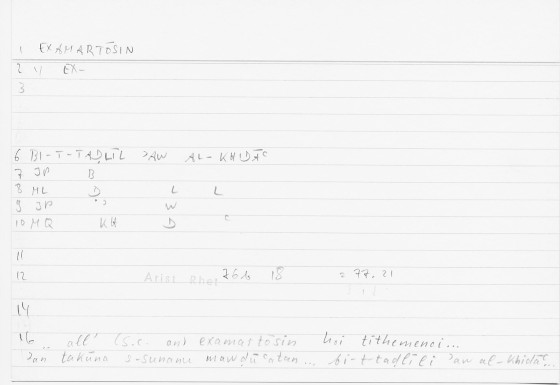 1 EXAMARTŌSIN
2 " EX-
3
6 BI-T-TAḌLĪL ʾAW AL-KHIDĀʿ
7 JP B
8 ML Ḍ L L
9 JP ʾ W
10 MQ KH D ʿ
11
12 Arist Rhet 76b 18 = 77.21
14
16 .. all' (s.c. an) examartōsin hoi tithemenoi...
ʾan takūna s-sunanu mawḍūʿatan... bi-t-taḍlīli ʾaw al-khidāʿ.